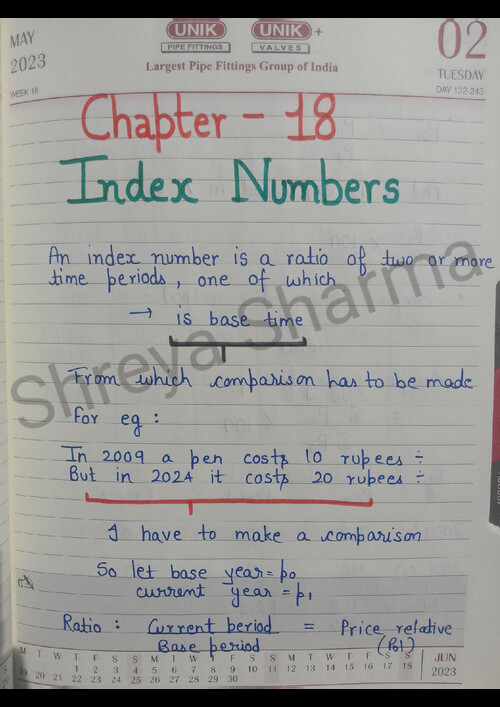 MAY
2023
WEEK 18
UNIK
PIPE FITTINGS
UNIK +
VALVES
Largest Pipe Fittings Group of India
02
TUESDAY
DAY 122-243
Chapter - 18
Index Numbers
An index number is a ratio of two or more
time periods, one of which
→ is base time
From which comparison has to be made
For eg :
In 2009 a pen costs 10 rupees ÷
But in 2024 it costs 20 rupees ÷
I have to make a comparison
So let base year = p0
current year = p1
Ratio : Current period = Price relative
Base period (P01)
M T W T F S S M T W T F S S M T W T F S S M T W T F S S
19 20 21 22 23 24 25 26 27 28 29 30
1 2 3 4 5 6 7 8 9 10 11 12 13 14 15 16 17 18
JUN
2023
Shreya Sharma